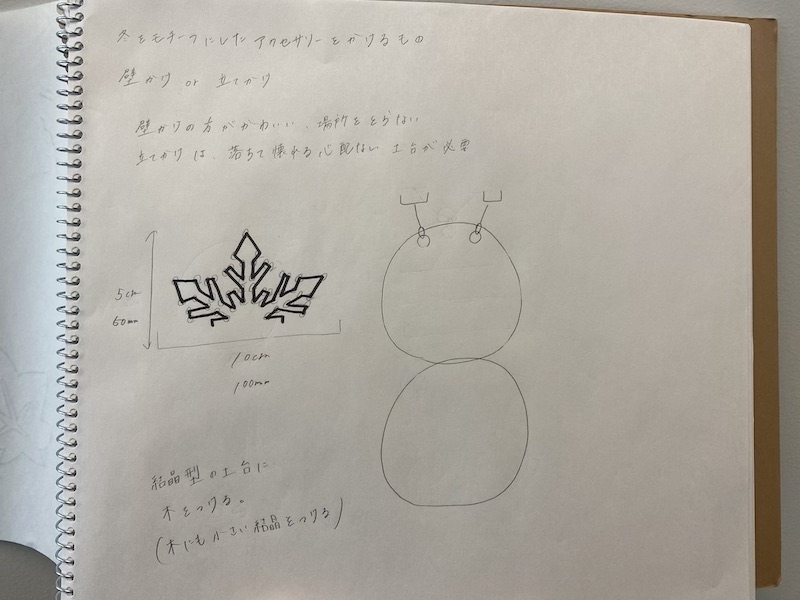 冬をモチーフにしたアクセサリーをかけるもの
壁かけ or 立てかけ
壁かけの方がかわいい、場所をとらない
立てかけは、落ちて壊れる心配ない 土台が必要
5cm
50mm
10cm
100mm
結晶型の土台に
木をつける。
(木にも小さい結晶をつける)